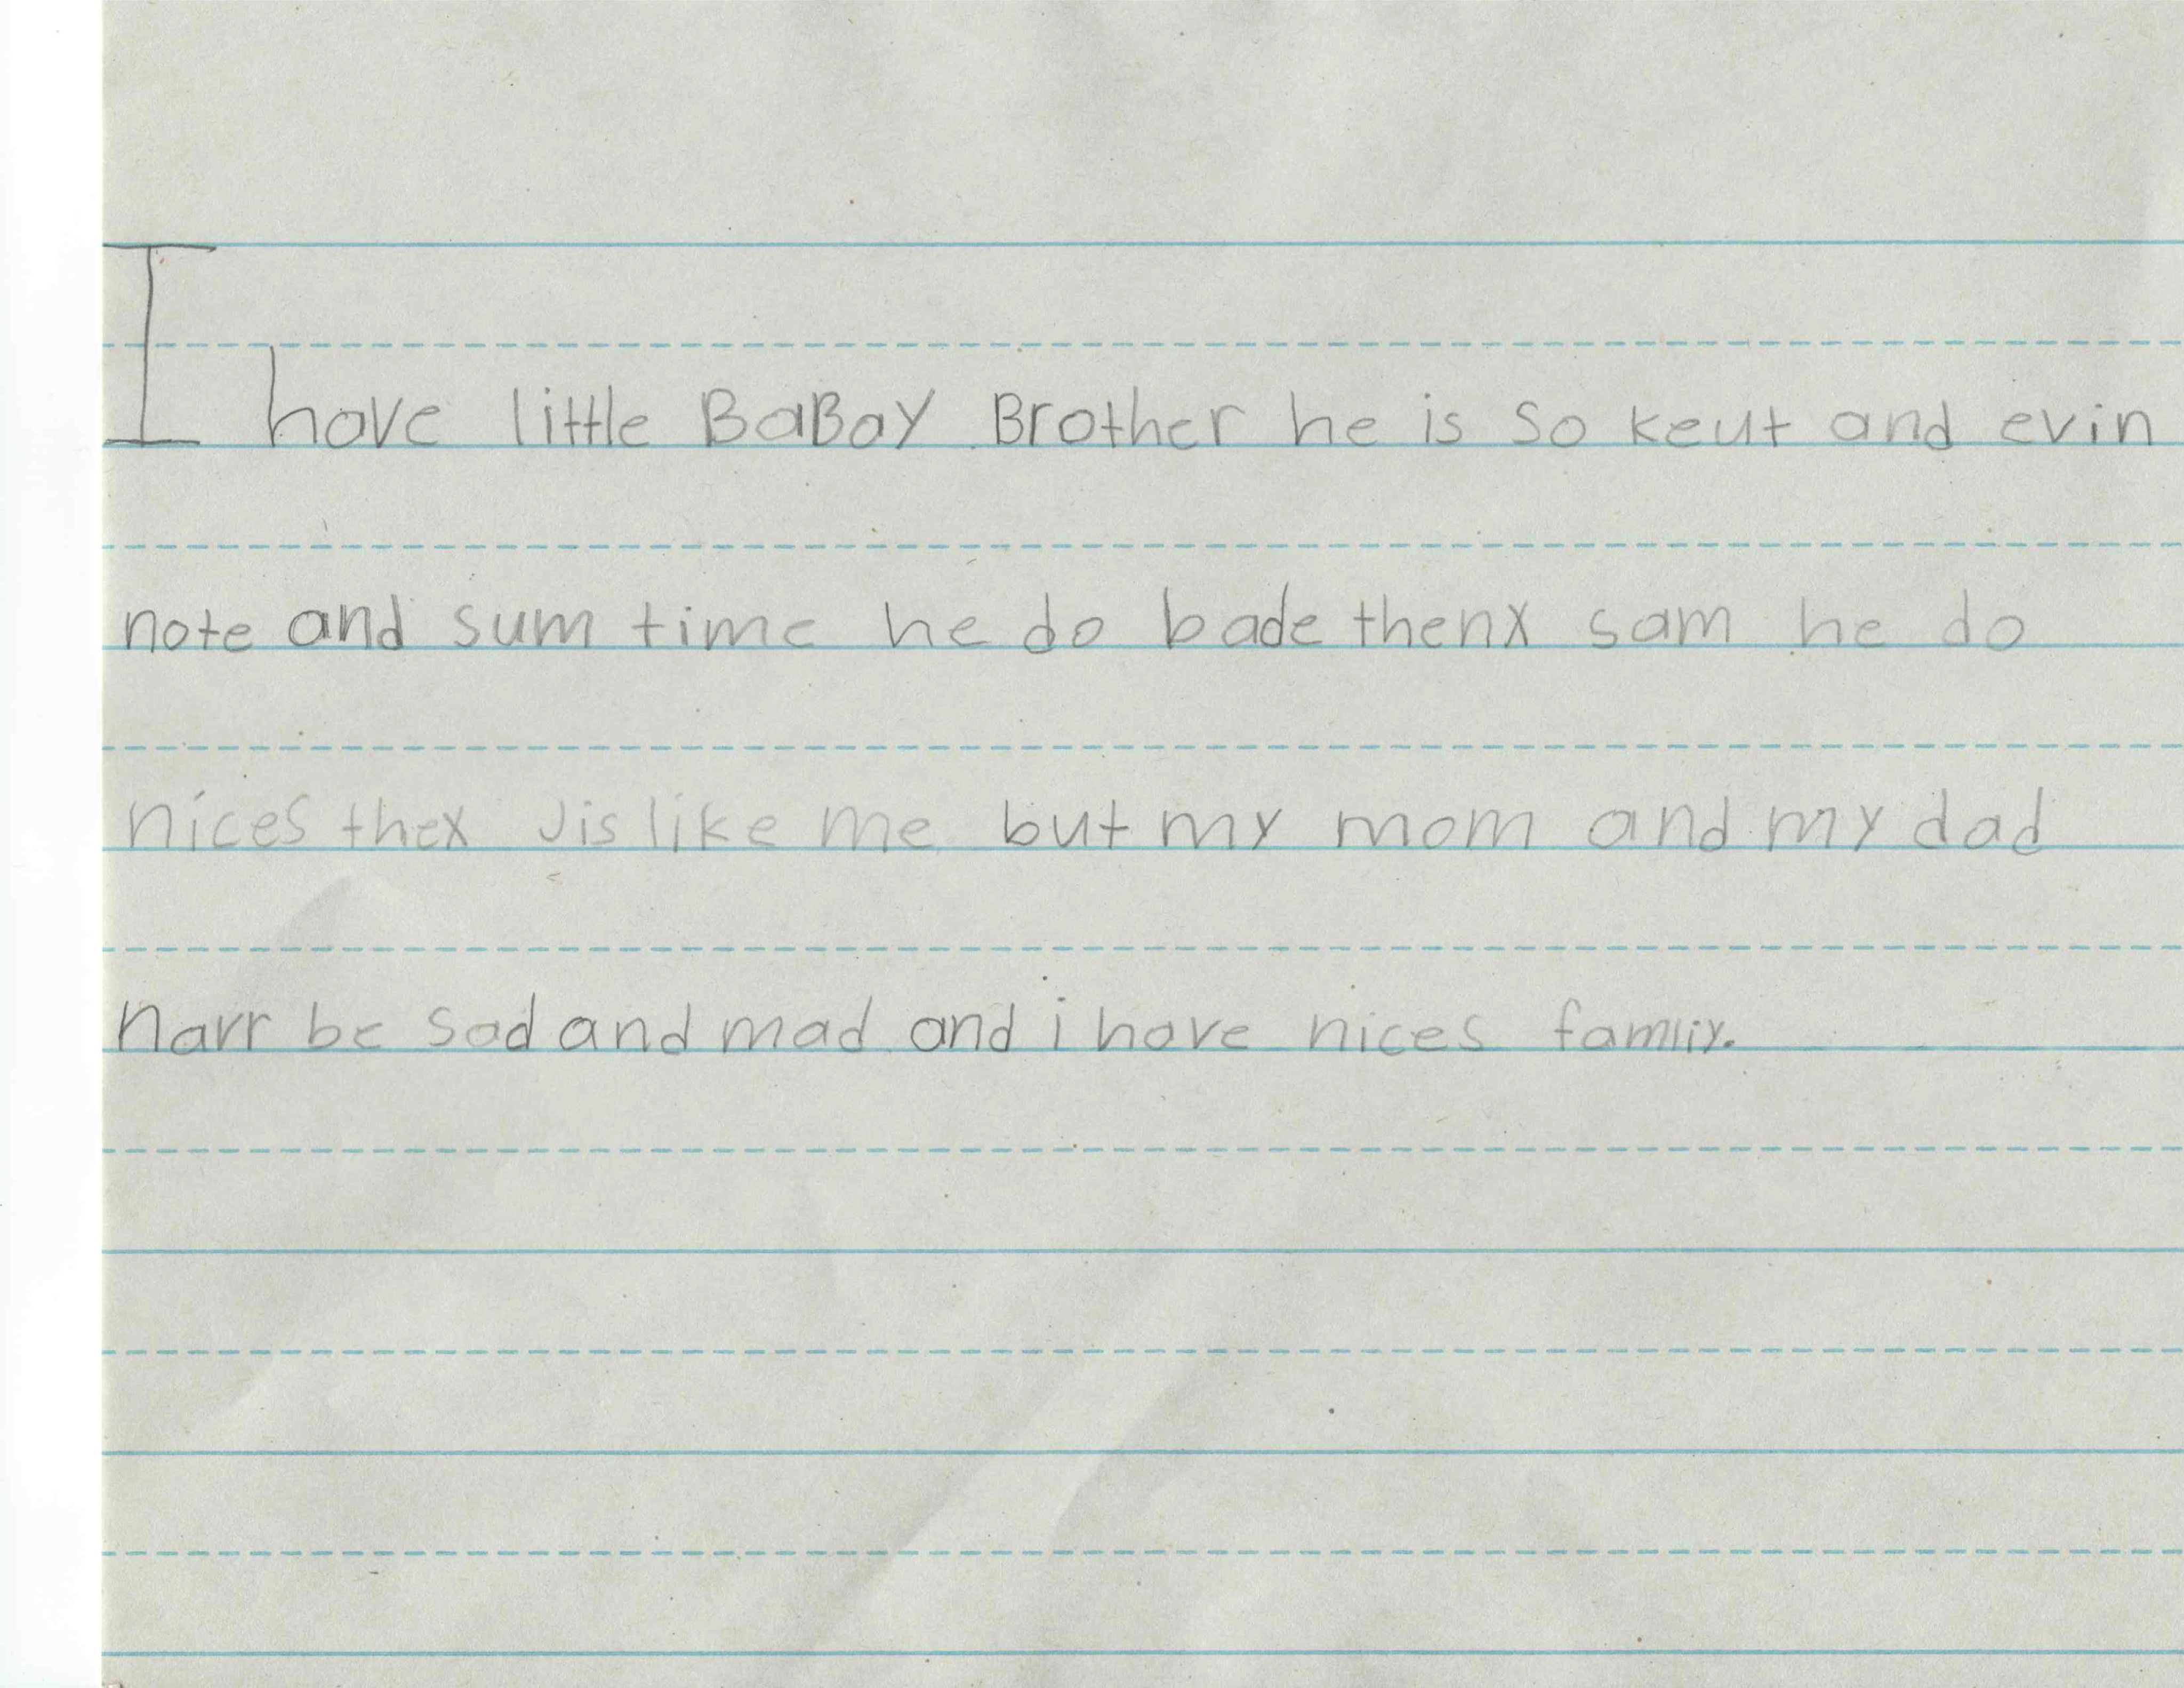 I have little BaBay Brother he is so keut and evin
note and sum time he do bade thenx sam he do
nices thex Jis like me but my mom and my dad
narr be sad and mad and i have nices famliy.